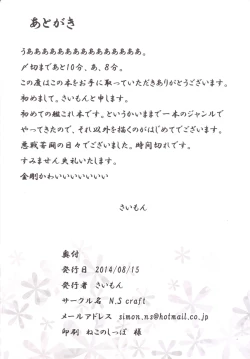 あとがき
うああああああああああああああああ。
〆切まであと10分、あ、8分。
この度はこの本をお手に取っていただきありがとうございます。
初めまして。さいもんと申します。
初めての艦これ本です。というかいままで一本のジャンルで
やってきたので、それ以外を描くのがはじめてでございます。
悪戦苦闘の日々でございました。時間切れです。
すみません失礼いたします。
金剛かわいいいいいいい
さいもん
奥付
発行日 2014/08/15
発行者 さいもん
サークル名 N.S craft
メールアドレス simon.ns@hotmail.co.jp
印刷 ねこのしっぽ 様